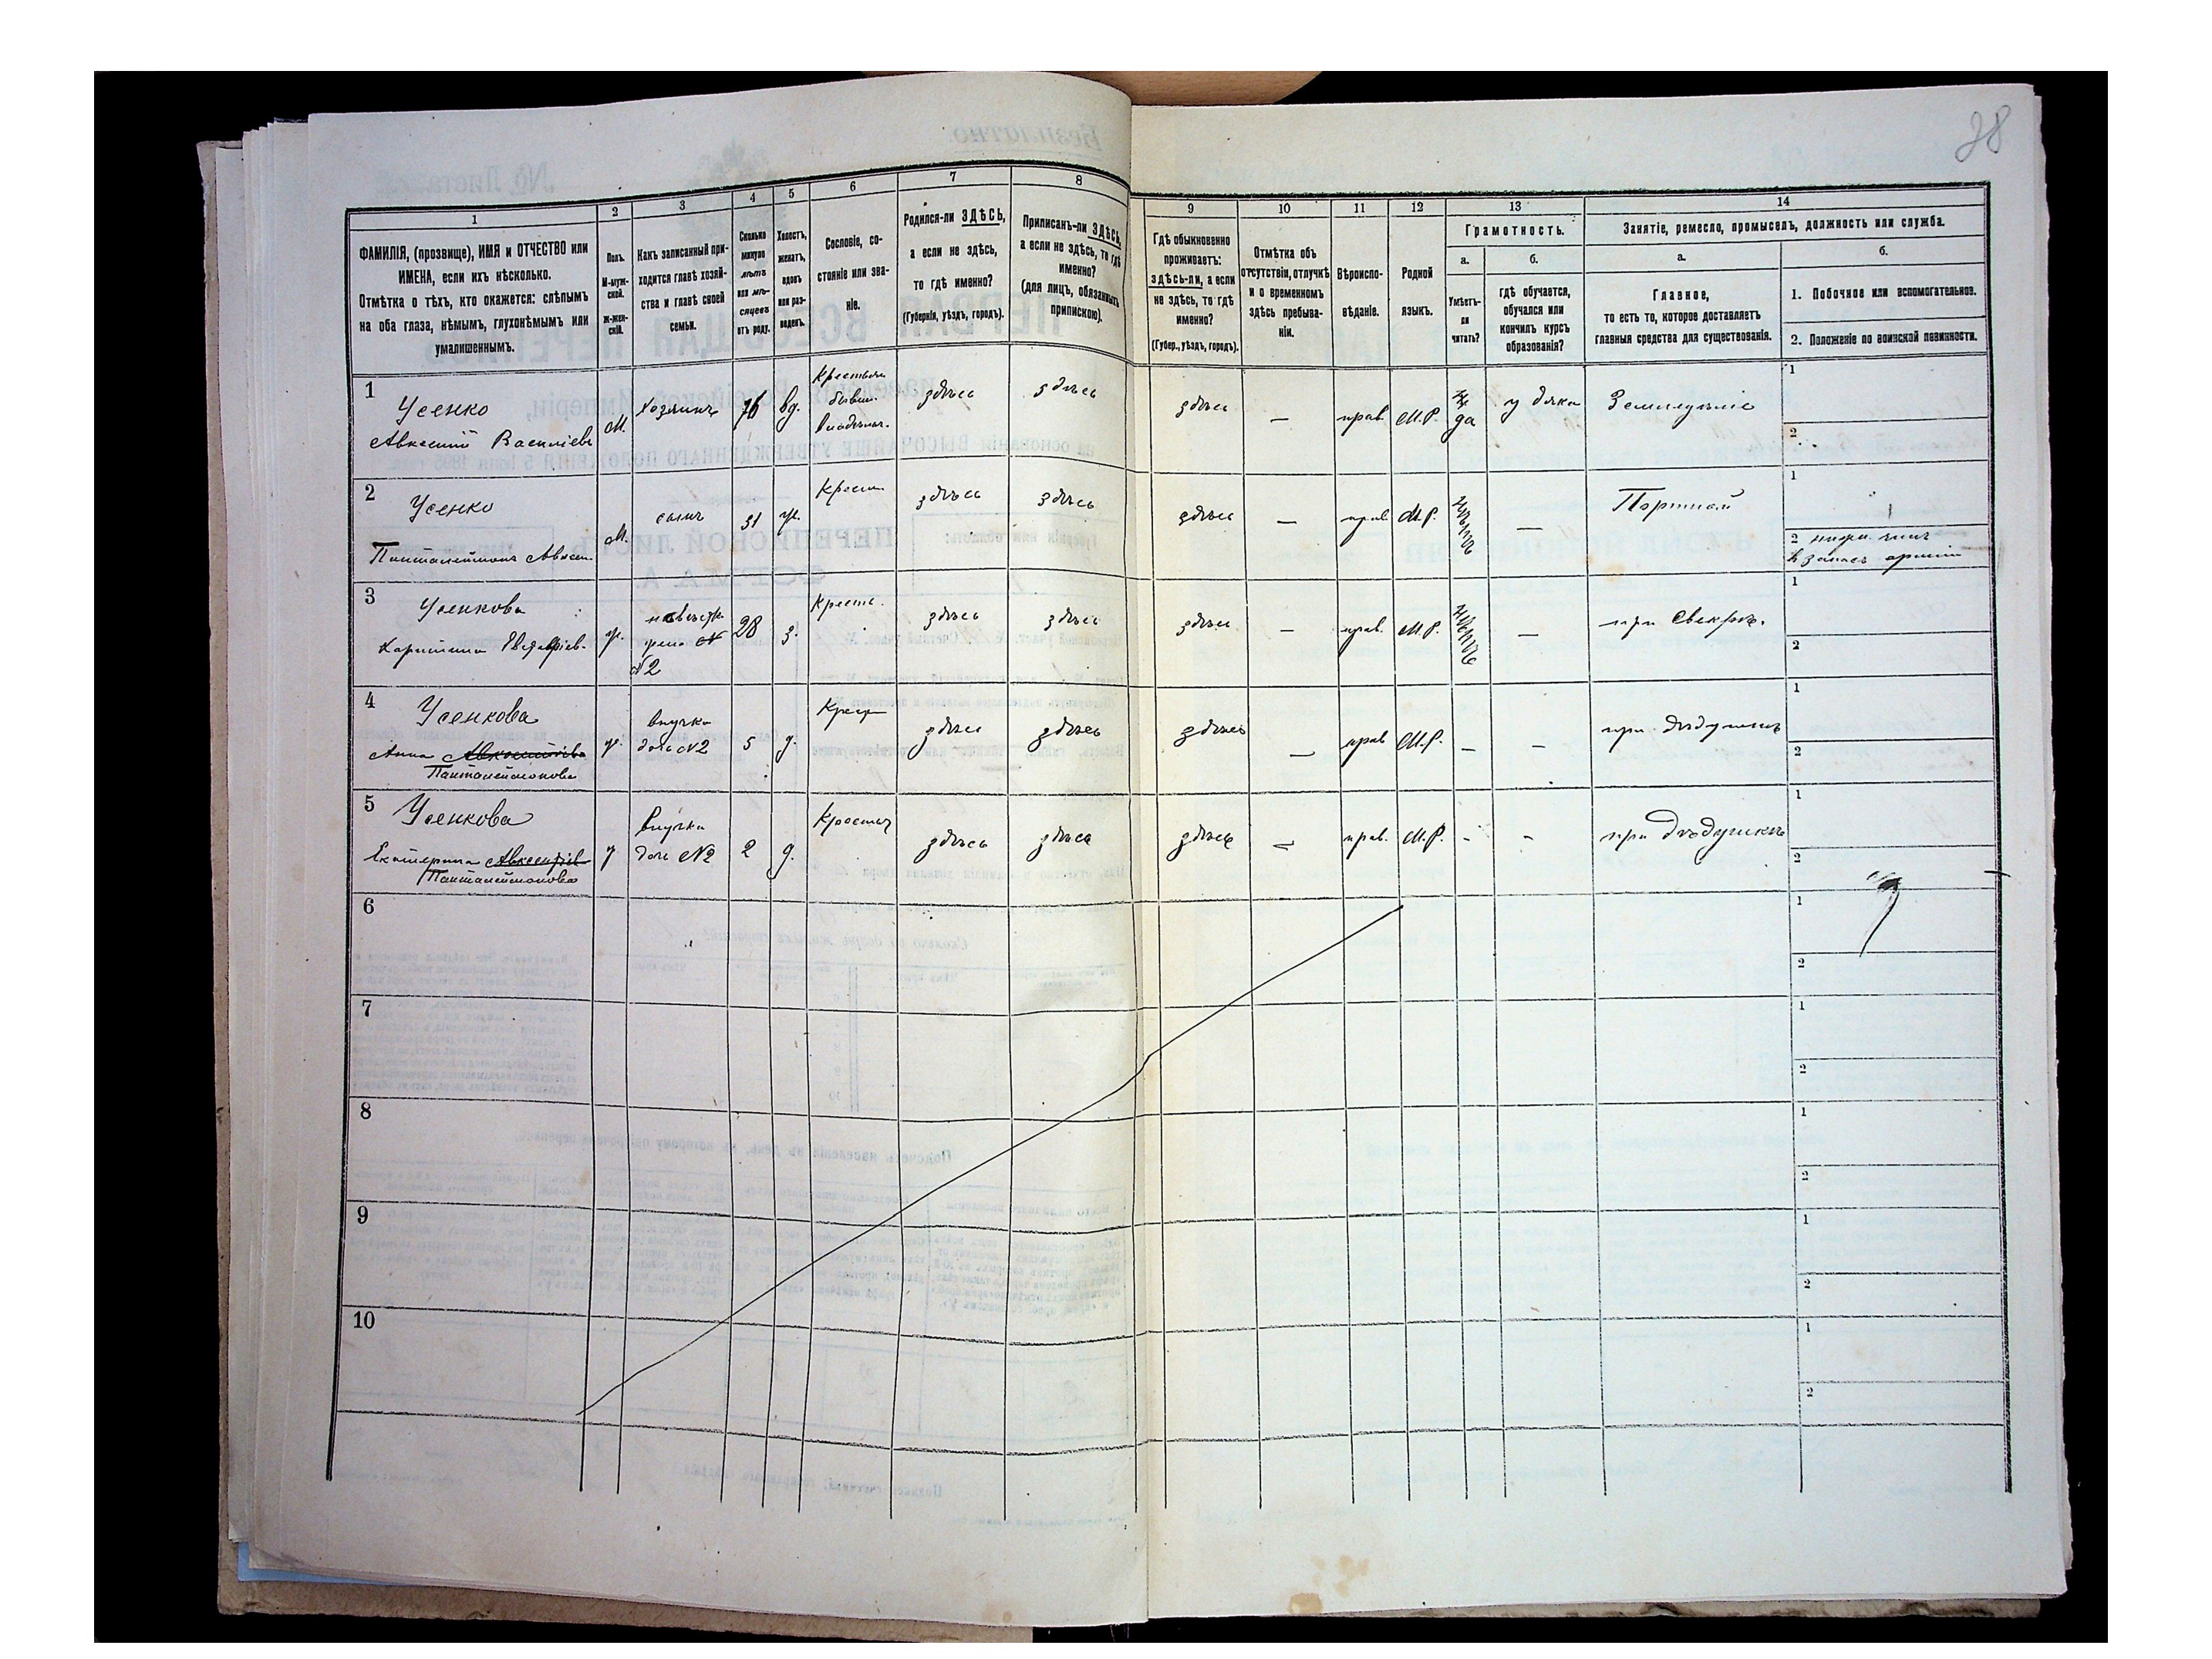 38
1
2
3
4
5
6
7
8
9
10
11
12
13
14
ФАМИЛІЯ, (прозвище), ИМЯ и ОТЧЕСТВО или
ИМЕНА, если ихъ нѣсколько.
Отмѣтка о тѣхъ, кто окажется: слѣпымъ
на оба глаза, нѣмымъ, глухонѣмымъ или
умалишеннымъ.
Полъ.
М-муж-
ской.
Ж-жен-
скій.
Какъ записанный при-
ходится главѣ хозяй-
ства и главѣ своей
семьи.
Сколько
минуло
лѣтъ
или мѣ-
сяцевъ
отъ роду.
Холостъ,
женатъ,
вдовъ
или раз-
веденъ.
Сословіе, со-
стояніе или зва-
ніе.
Родился-ли ЗДѢСЬ,
а если не здѣсь,
то гдѣ именно?
(Губернія, уѣздъ, городъ).
Приписанъ-ли ЗДѢСЬ,
а если не здѣсь, то гдѣ
именно?
(для лицъ, обязанныхъ
припискою).
Гдѣ обыкновенно
проживаетъ:
здѣсь-ли, а если
не здѣсь, то гдѣ
именно?
(Губер., уѣздъ, городъ).
Отмѣтка объ
отсутствіи, отлучкѣ
и о временномъ
здѣсь пребыва-
ніи.
Вѣроиспо-
вѣданіе.
Родной
языкъ.
Грамотность.
а.
Умѣетъ-
ли
читать?
б.
гдѣ обучается,
обучался или
кончилъ курсъ
образованія?
Занятіе, ремесло, промыселъ, должность или служба.
а.
Главное,
то есть то, которое доставляетъ
главныя средства для существованія.
б.
1. Побочное или вспомогательное.
2. Положеніе по воинской повинности.
1
Усенко
Авксентій Василіевъ
М.
Хозяинъ
76
вд.
Крестьян.
бывш.
Владѣльч.
здѣсь
здѣсь
здѣсь
—
прав.
М.Р.
да
у дяка
Земледѣліе
1
2
2
Усенко
Пантелеймонъ Авксен.
М.
сынъ
31
ж.
Крест.
здѣсь
здѣсь
здѣсь
—
прав.
М.Р.
Нѣтъ
—
Портной
1
2 нижн. чинъ
в запасѣ арміи
3
Усенкова
Харитина Евстафіев.
ж.
невѣстка
жена №
№2
28
з.
Крест.
здѣсь
здѣсь
здѣсь
—
прав.
М.Р.
Нѣтъ
—
при Свекрѣ.
1
2
4
Усенкова
Анна Авксентіева
Пантелеймонова
ж.
внучка
дочь №2
5
д.
Крест
здѣсь
здѣсь
здѣсь
—
прав
М.Р.
—
—
при дѣдушкѣ
1
2
5
Усенкова
Екатерина Авксентіев
Пантелеймонова
ж
Внучка
дочь №2
2
д.
Крестья
здѣсь
здѣсь
здѣсь
—
прав.
М.Р.
-
-
при Дѣдушкѣ
1
2
6
1
2
7
1
2
8
1
2
9
1
2
10
1
2